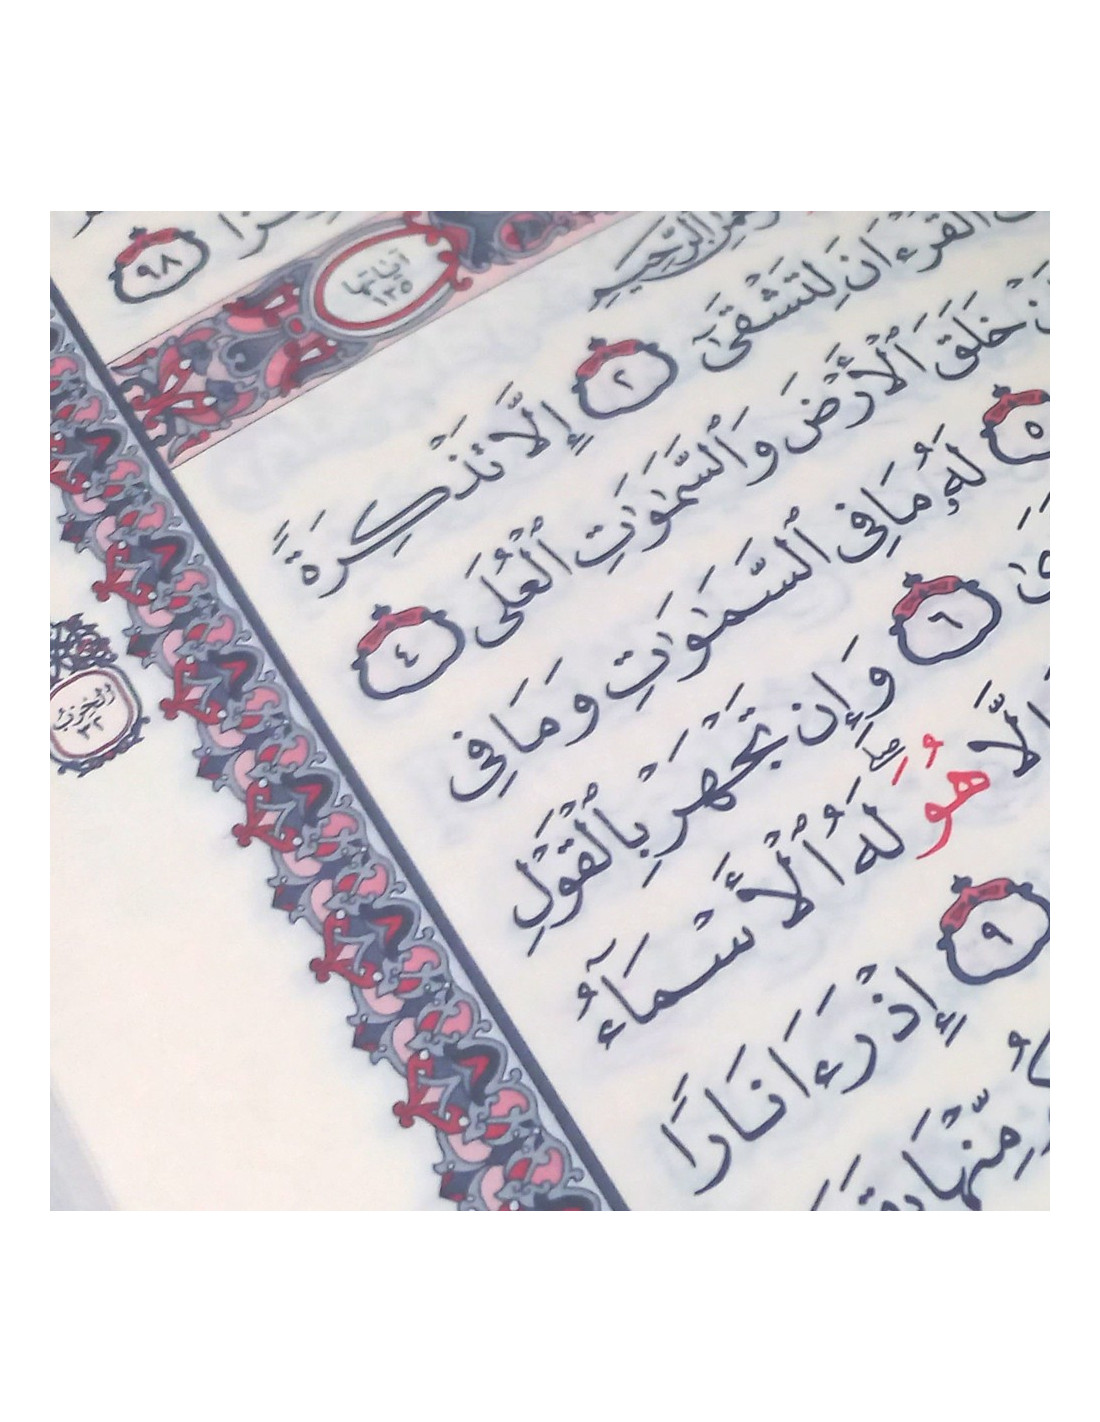 ٩٨
آيَاتُهَا
١٣٥
ٱلرَّحِيمِ
ٱلْقُرْءَانَ لِتَشْقَىٰٓ ٢ إِلَّا تَذْكِرَةً
خَلَقَ ٱلْأَرْضَ وَٱلسَّمَٰوَٰتِ ٱلْعُلَى ٤
٥ لَهُۥ مَا فِى ٱلسَّمَٰوَٰتِ وَمَا فِى
٦ وَإِن تَجْهَرْ بِٱلْقَوْلِ
إِلَّا هُوَ ۖ لَهُ ٱلْأَسْمَآءُ
٩ إِذْ رَءَا نَارًا
مِّنْهَا
الحزب
٣٢